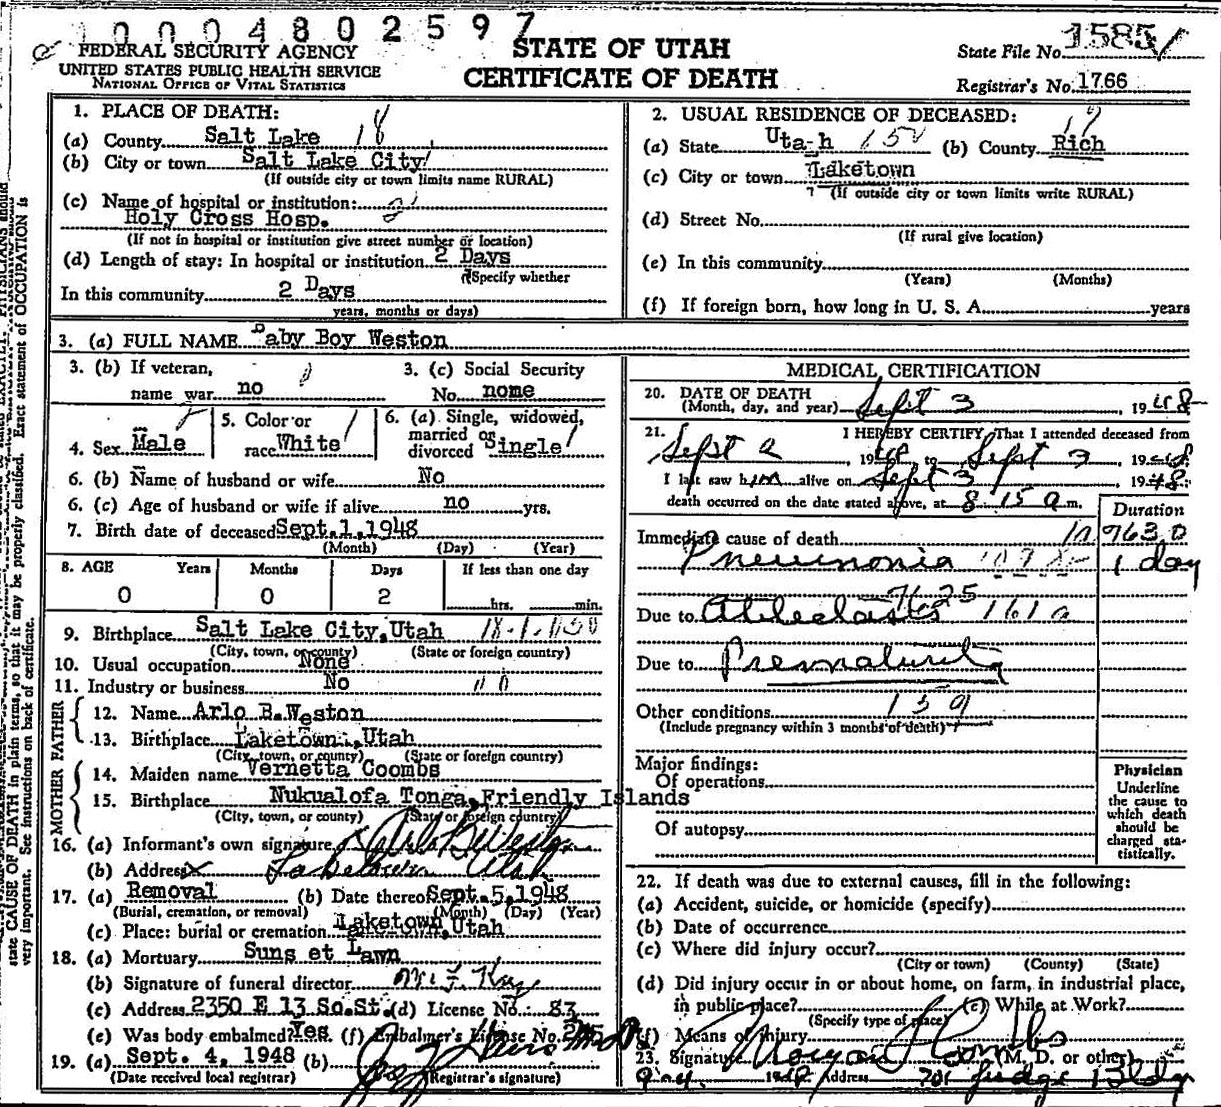 0004802597
FEDERAL SECURITY AGENCY
UNITED STATES PUBLIC HEALTH SERVICE
NATIONAL OFFICE OF VITAL STATISTICS
STATE OF UTAH
CERTIFICATE OF DEATH
State File No. 1585
Registrar's No. 1766
1. PLACE OF DEATH:
(a) County Salt Lake 18
(b) City or town Salt Lake City
(If outside city or town limits name RURAL)
(c) Name of hospital or institution:
Holy Cross Hosp.
(If not in hospital or institution give street number or location)
(d) Length of stay: In hospital or institution 2 Days
(Specify whether
In this community 2 Days
years, months or days)
2. USUAL RESIDENCE OF DECEASED: 17
(a) State Utah 152 (b) County Rich
(c) City or town Laketown
(If outside city or town limits write RURAL)
(d) Street No.
(If rural give location)
(e) In this community
(Years) (Months)
(f) If foreign born, how long in U. S. A. years
3. (a) FULL NAME Baby Boy Weston
3. (b) If veteran,
name war no
3. (c) Social Security
No. nome
4. Sex Male
5. Color or
race White
6. (a) Single, widowed,
married or
divorced Single
6. (b) Name of husband or wife No
6. (c) Age of husband or wife if alive no yrs.
7. Birth date of deceased Sept.1,1948
(Month) (Day) (Year)
8. AGE Years Months Days If less than one day
0 0 2 hrs. min.
9. Birthplace Salt Lake City,Utah
(City, town, or county) (State or foreign country)
10. Usual occupation None
11. Industry or business No
FATHER
12. Name Arlo B.Weston
13. Birthplace Laketown,Utah
(City, town, or county) (State or foreign country)
MOTHER
14. Maiden name Vernetta Coombs
15. Birthplace Nukualofa Tonga,Friendly Islands
(City, town, or county) (State or foreign country)
16. (a) Informant's own signature Arlo B Weston
(b) Address Laketown Utah
17. (a) Removal (b) Date thereof Sept.5,1948
(Burial, cremation, or removal) (Month) (Day) (Year)
(c) Place: burial or cremation Laketown,Utah
18. (a) Mortuary Suns et Lawn
(b) Signature of funeral director
(c) Address 2350 E 13 So.St. (d) License No. 83
(e) Was body embalmed? Yes (f) Embalmer's License No.
19. (a) Sept. 4, 1948 (b)
(Date received local registrar) (Registrar's signature)
MEDICAL CERTIFICATION
20. DATE OF DEATH
(Month, day, and year) Sept 3, 1948
21. I HEREBY CERTIFY, That I attended deceased from
Sept 2, 1948 to Sept 3, 1948
I last saw him alive on Sept 3, 1948:
death occurred on the date stated above, at 8 15 a m.
Duration
Immediate cause of death 7630
Pneumonia 1 day
7625
Due to Atelectasis 161a
Due to Prematurity
159
Other conditions
(Include pregnancy within 3 months of death)
Major findings:
Of operations
Of autopsy
Physician
Underline
the cause to
which death
should be
charged sta-
tistically.
22. If death was due to external causes, fill in the following:
(a) Accident, suicide, or homicide (specify)
(b) Date of occurrence
(c) Where did injury occur?
(City or town) (County) (State)
(d) Did injury occur in or about home, on farm, in industrial place,
in public place? (e) While at Work?
(Specify type of place)
(f) Means of injury
23. Signature Morgan Coombs (M. D. or other)
Address 701 Judge Bldg
state CAUSE OF DEATH in plain terms, so that it may be properly classified. Exact statement of OCCUPATION is
very important. See instructions on back of certificate.